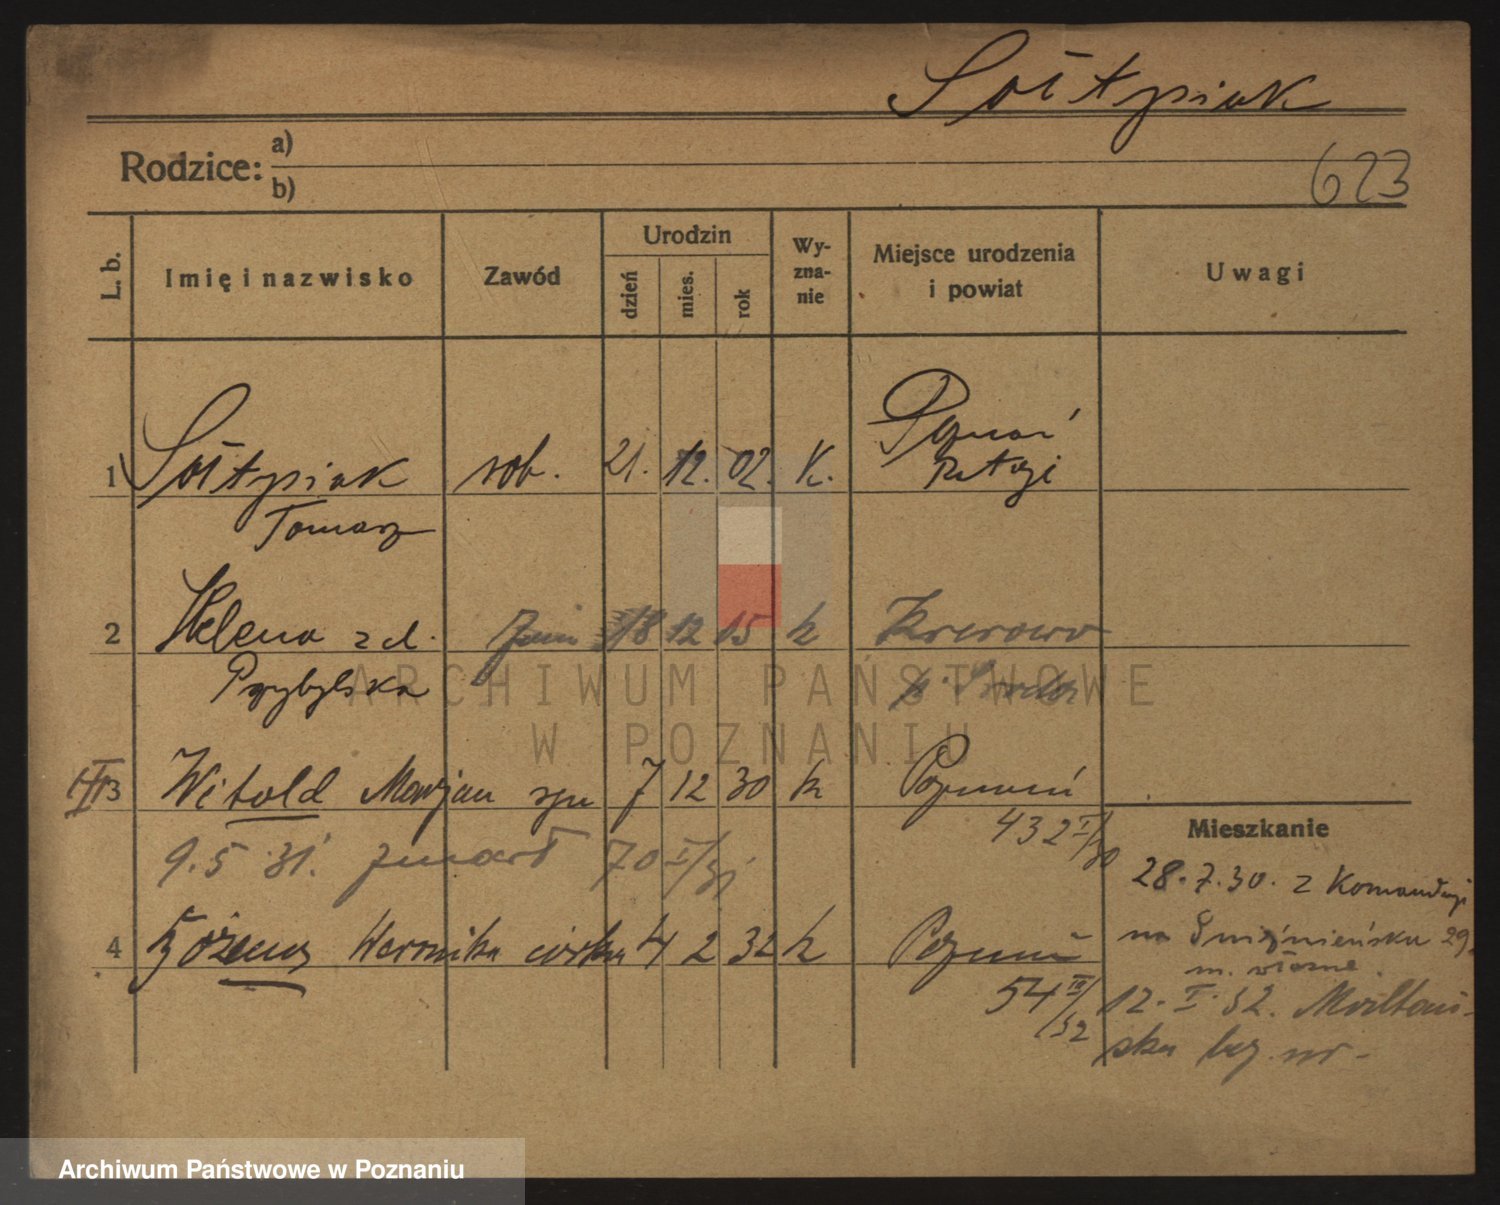 Sołtysiak
Rodzice: a)
b)
623
L. b.
Imię i nazwisko
Zawód
Urodzin
dzień
mies.
rok
Wy-
zna-
nie
Miejsce urodzenia
i powiat
Uwagi
1 Sołtysiak rob. 21. 12. 02. K. Poznań
Rataje
Tomasz
2 Helena z d. 18 12 15 k Krerowo
Przybylska p. Środa
3 Witold Marjan syn 7 12 30 k Poznań
432 I/30
9. 5 31. zmarł 70 I/31
4 Bożena Weronika córka 4 2 32 k Poznań
54 III/32
Mieszkanie
28. 7. 30. z Komandorji
na 29
m. własne.
12. I. 32. Maltań-
ska bez nr.
ARCHIWUM PAŃSTWOWE
W POZNANIU
Archiwum Państwowe w Poznaniu